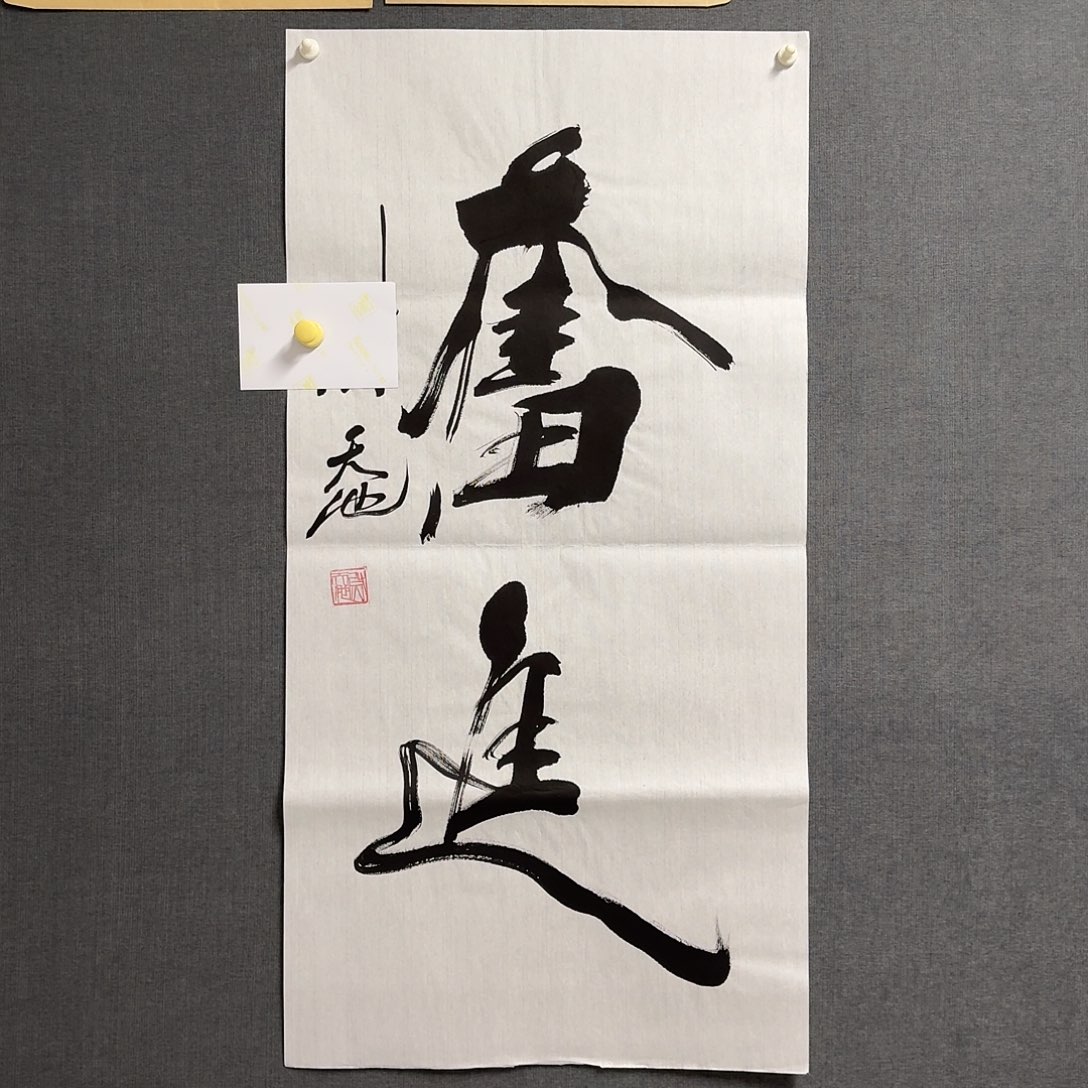 奮進
天池